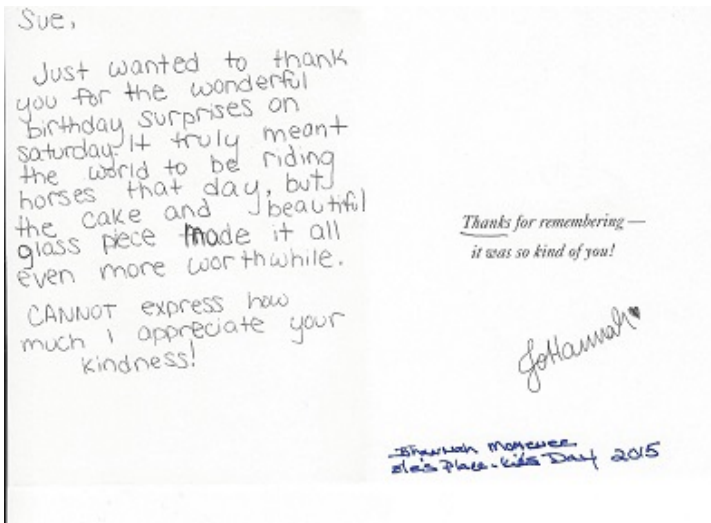 Sue,
Just wanted to thank
you for the wonderful
birthday surprises on
saturday. It truly meant
the world to be riding
horses that day, but
the cake and beautiful
glass piece made it all
even more worthwhile.
CANNOT express how
much i appreciate your
kindness!
Thanks for remembering —
it was so kind of you!
JoHannah
ele's Place - Kids Day 2015